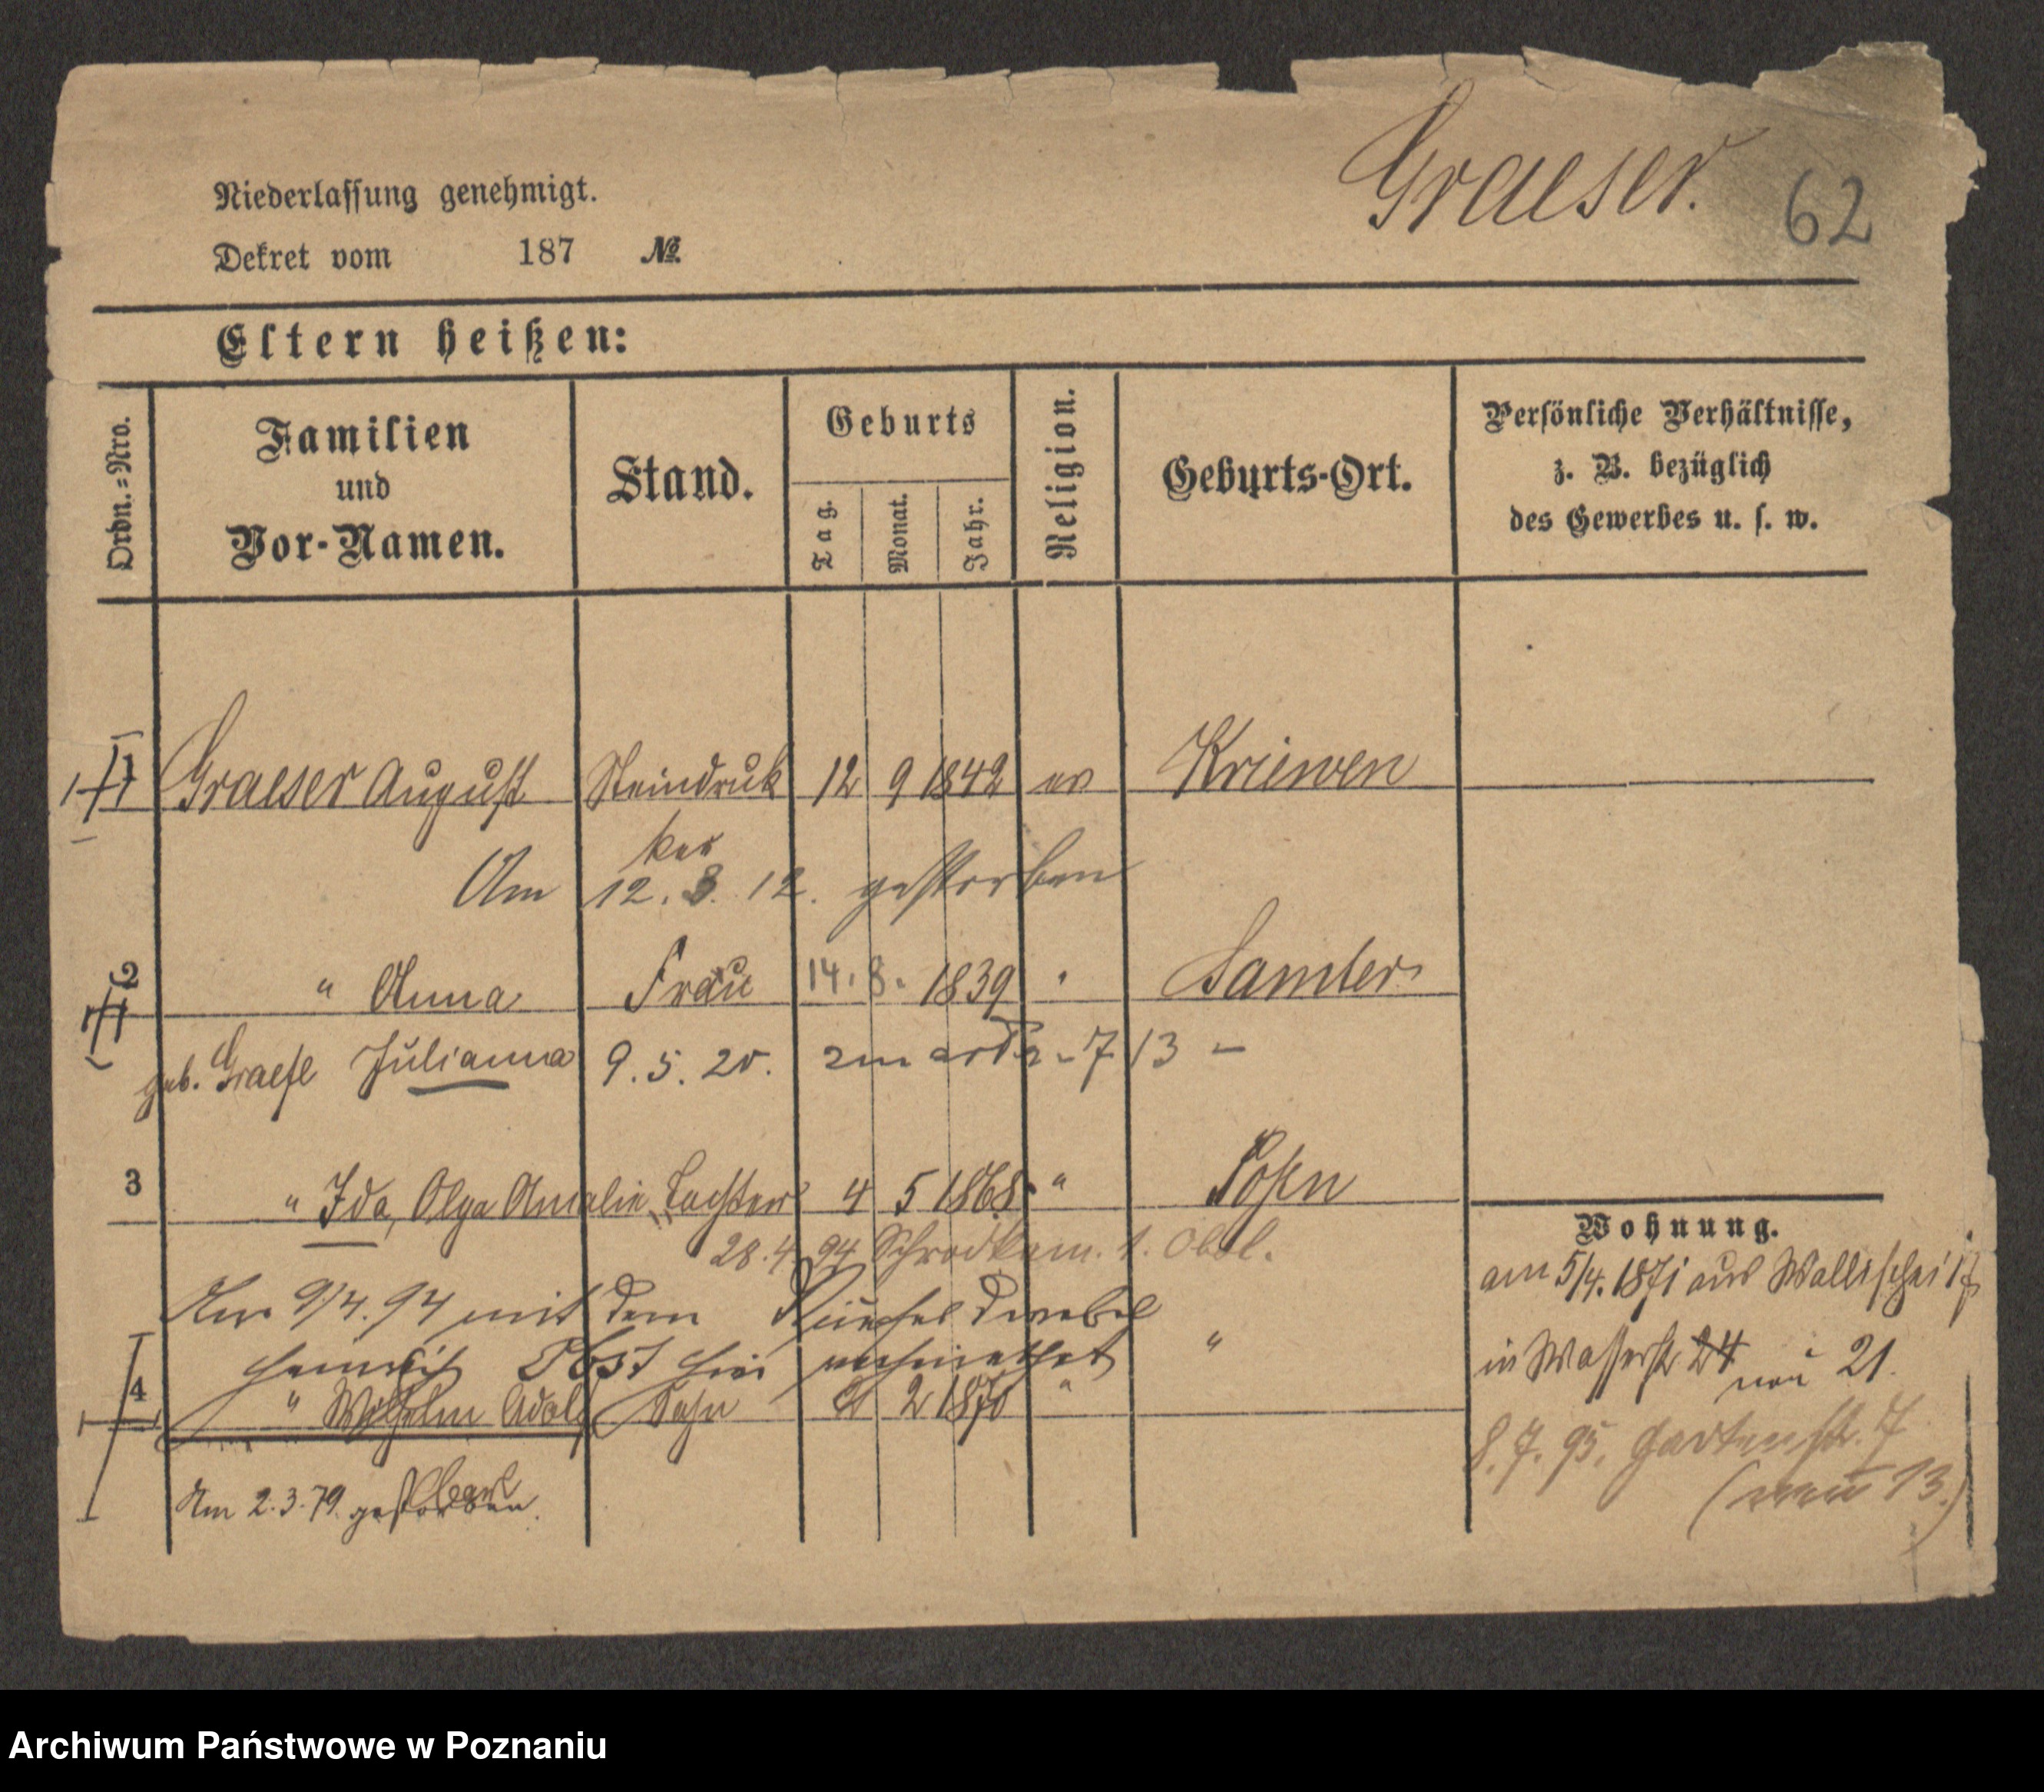 Graeser.
62
Niederlassung genehmigt.
Dekret vom 187 №
Eltern heißen:
Ordn.=Nro.
Familien und Vor-Namen.
Stand.
Geburts
Tag.
Monat.
Jahr.
Religion.
Geburts-Ort.
Persönliche Verhältnisse,
z. B. bezüglich
des Gewerbes u. s. w.
1 Graeser August Steindruk 12 9 1842 ev Kriewen
ker
Am 12. 3. 12. gestorben
2 " Anna Frau 14. 8. 1839 " Samter
geb. Graese Julianna 9. 5. 20. 7/13 -
3 " Ida, Olga Amalie, Tochter 4 5 1868 " Posen
28. 4. 94 Schrodkam. 1. Obl.
Am 9/4. 94 mit dem
Heinrich Obst hier verheirathet "
4 " Wilhelm Adolf Sohn 2 1870 "
Am 2. 3. 79. gestorben.
Wohnung.
am 5/4. 1871 aus Wallischei 17
in Wasserstr 24 neu 21.
8. 7. 95. Gartenstr. 7
(neu 13.)
Archiwum Państwowe w Poznaniu